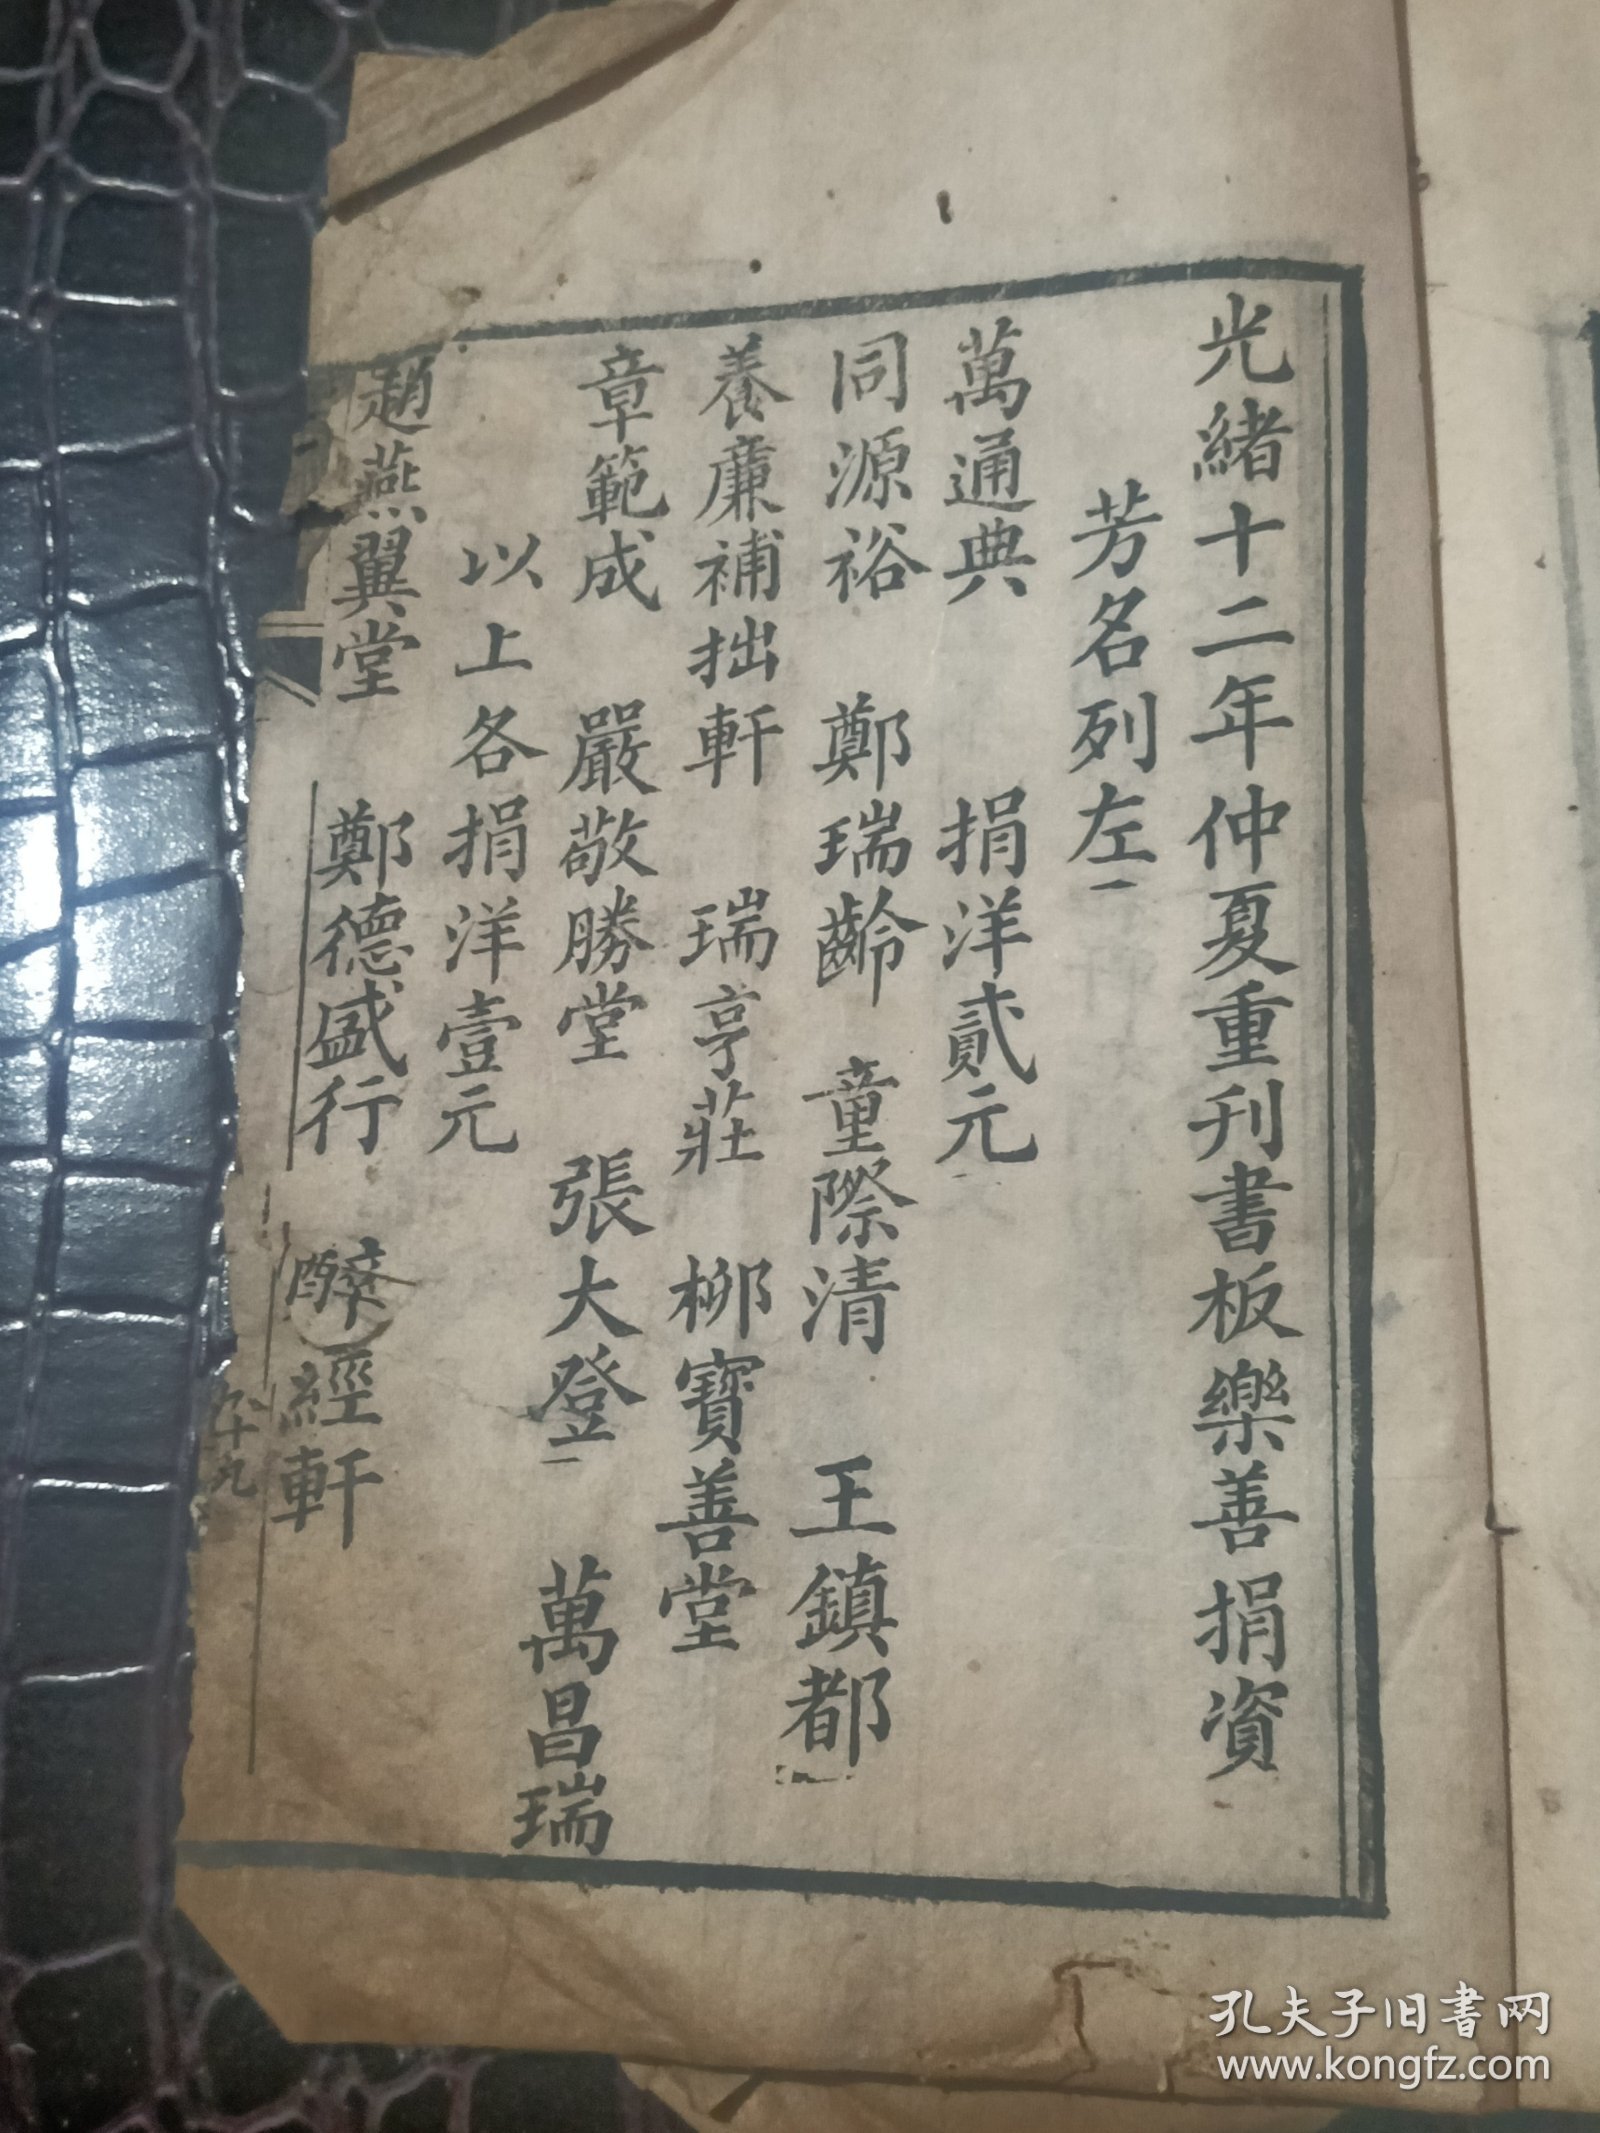 光緒十二年仲夏重刊書板樂善捐資
芳名列左
萬通典 捐洋貳元
同源裕 鄭瑞齡 童際清 王鎮都
養廉補拙軒 瑞亨莊 柳寶善堂
章範成 嚴敬勝堂 張大登 萬昌瑞
以上各捐洋壹元
趙燕翼堂 鄭德盛行 醉經軒
九十九
孔夫子旧书网
www.kongfz.com